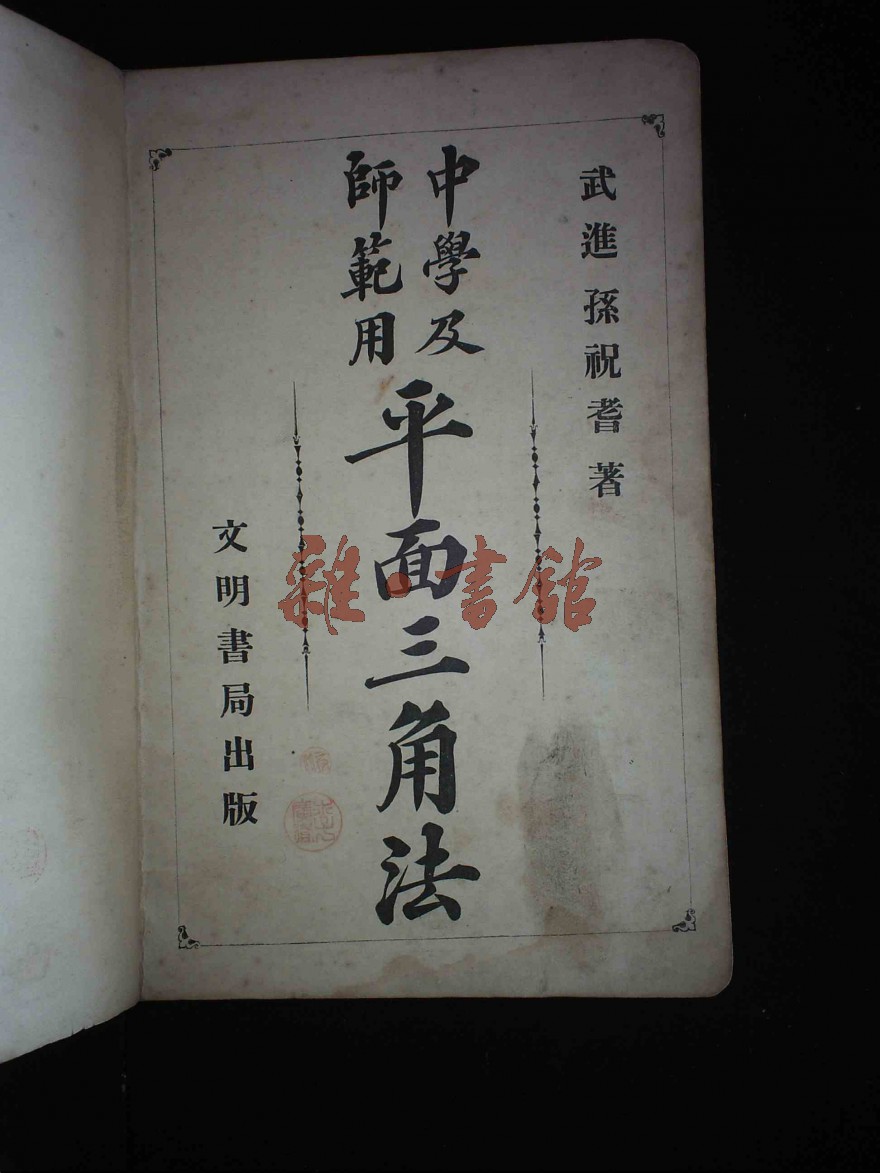 武進 孫祝耆 著
中學及
師範用
平面三角法
文明書局出版
雜·書館